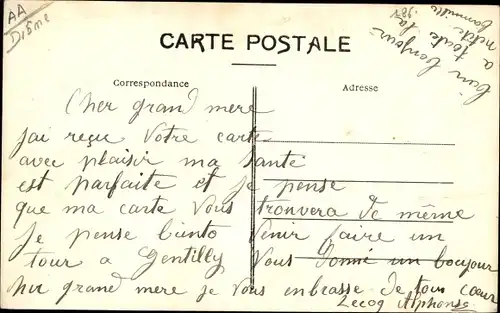 AA
Disme
bien bonjour
a toute la
CARTE POSTALE
Correspondance
Adresse
Cher grand mere
jai reçu Votre carte
avec plaisir ma Santé
est parfaite et je pense
que ma carte Vous trouvera de même
je pense biento Venir faire un
tour a Gentilly Vous Donné un boujour
cher grand mere je Vous enbrasse de tout cœur
Lecoq Alphonse